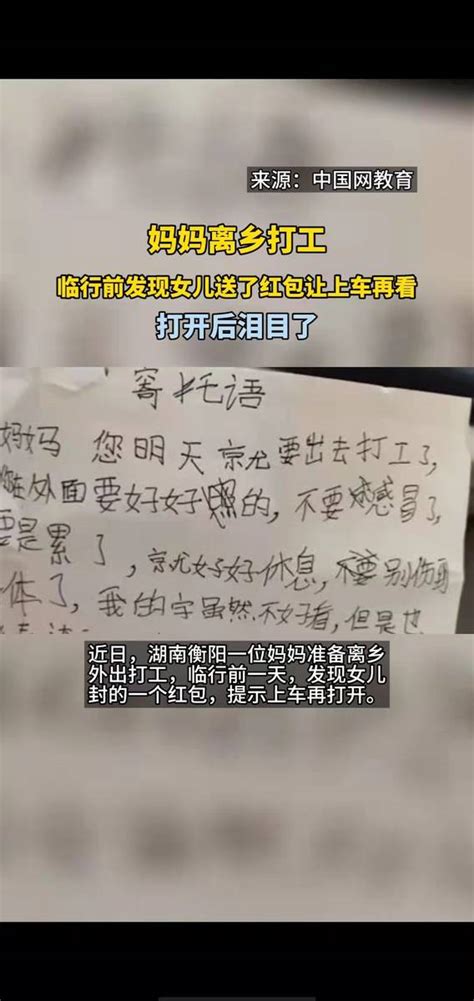 来源：中国网教育
妈妈离乡打工
临行前发现女儿送了红包让上车再看
打开后泪目了
寄托语
妈妈 您明天京尤要出去打工了,
在外面要好好照的，不要感冒了,
要是累了，京尤好好休息，不要别伤身
体了，我的字虽然不好看，但是也
近日，湖南衡阳一位妈妈准备离乡
外出打工，临行前一天，发现女儿
封的一个红包，提示上车再打开。